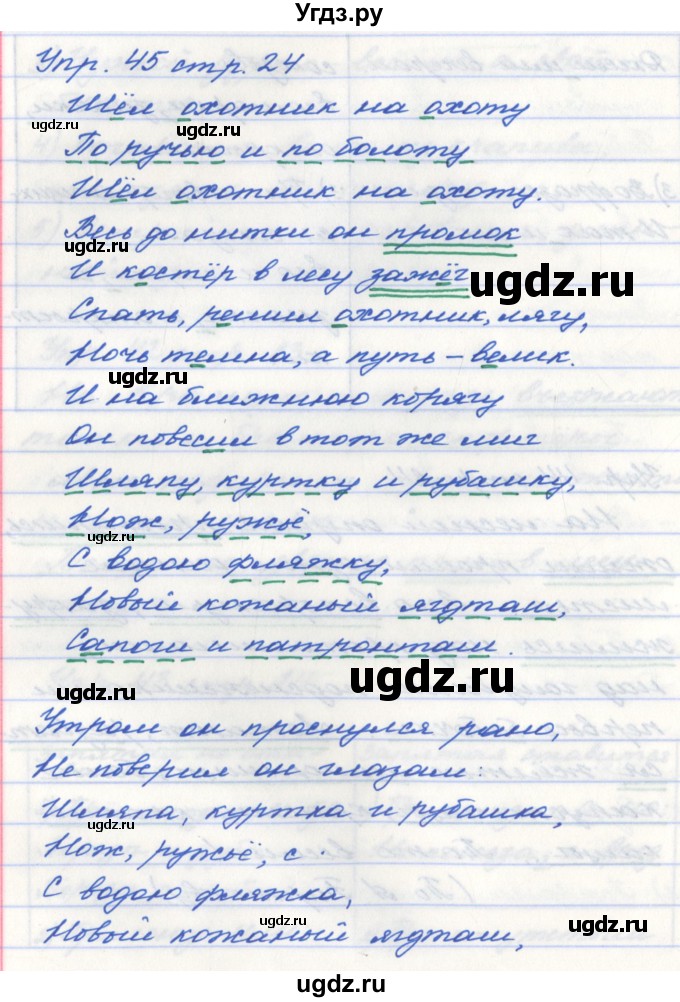 Угдз.ру
Упр. 45 стр. 24
Шёл охотник на охоту
ugdz.ru
ugdz.ru
По ручью и по болоту
Шёл охотник на охоту.
ugdz.ru
Весь до нитки он промок
ugdz.ru
И костёр в лесу зажёг
ugdz.ru
Спать, решил охотник, лягу,
Ночь темна, а путь – велик.
ugdz.ru
И на ближнюю корягу
Он повесил в тот же миг
Шляпу, куртку и рубашку,
Нож, ружьё,
ugdz.ru
С водою фляжку,
Новый кожаный ягдташ,
Сапоги и патронташ.
ugdz.ru
ugdz.ru
Утром он проснулся рано,
Не поверил он глазам:
Шляпа, куртка и рубашка,
ugdz.ru
Нож, ружьё, с
С водою фляжка,
ugdz.ru
ugdz.ru
Новый кожаный ягдташ,
ugdz.ru